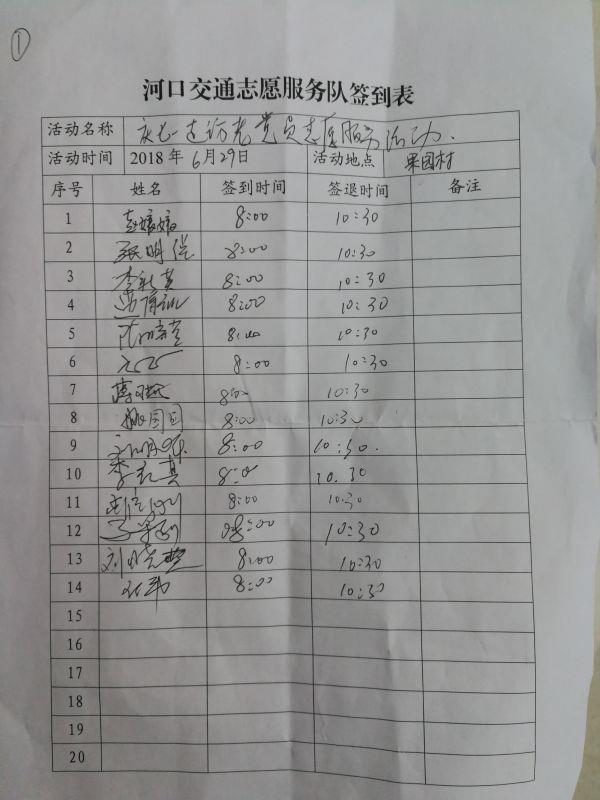 ①
河口交通志愿服务队签到表
活动名称 庆七一走访老党员志愿服务活动.
活动时间 2018年6月29日 活动地点 果园村
序号 姓名 签到时间 签退时间 备注
1 赵媛媛 8:00 10:30
2 张明信 8:00 10:30
3 李秋英 8:00 10:30
4 8:00 10:30
5 8:00 10:30
6 8:00 10:30
7 8:00 10:30
8 姚园园 8:00 10:30
9 8:00 10:30.
10 8:00 10.30
11 8:00 10:30
12 8:00 10:30
13 刘晓楚 8:00 10:30
14 8:00 10:30
15
16
17
18
19
20